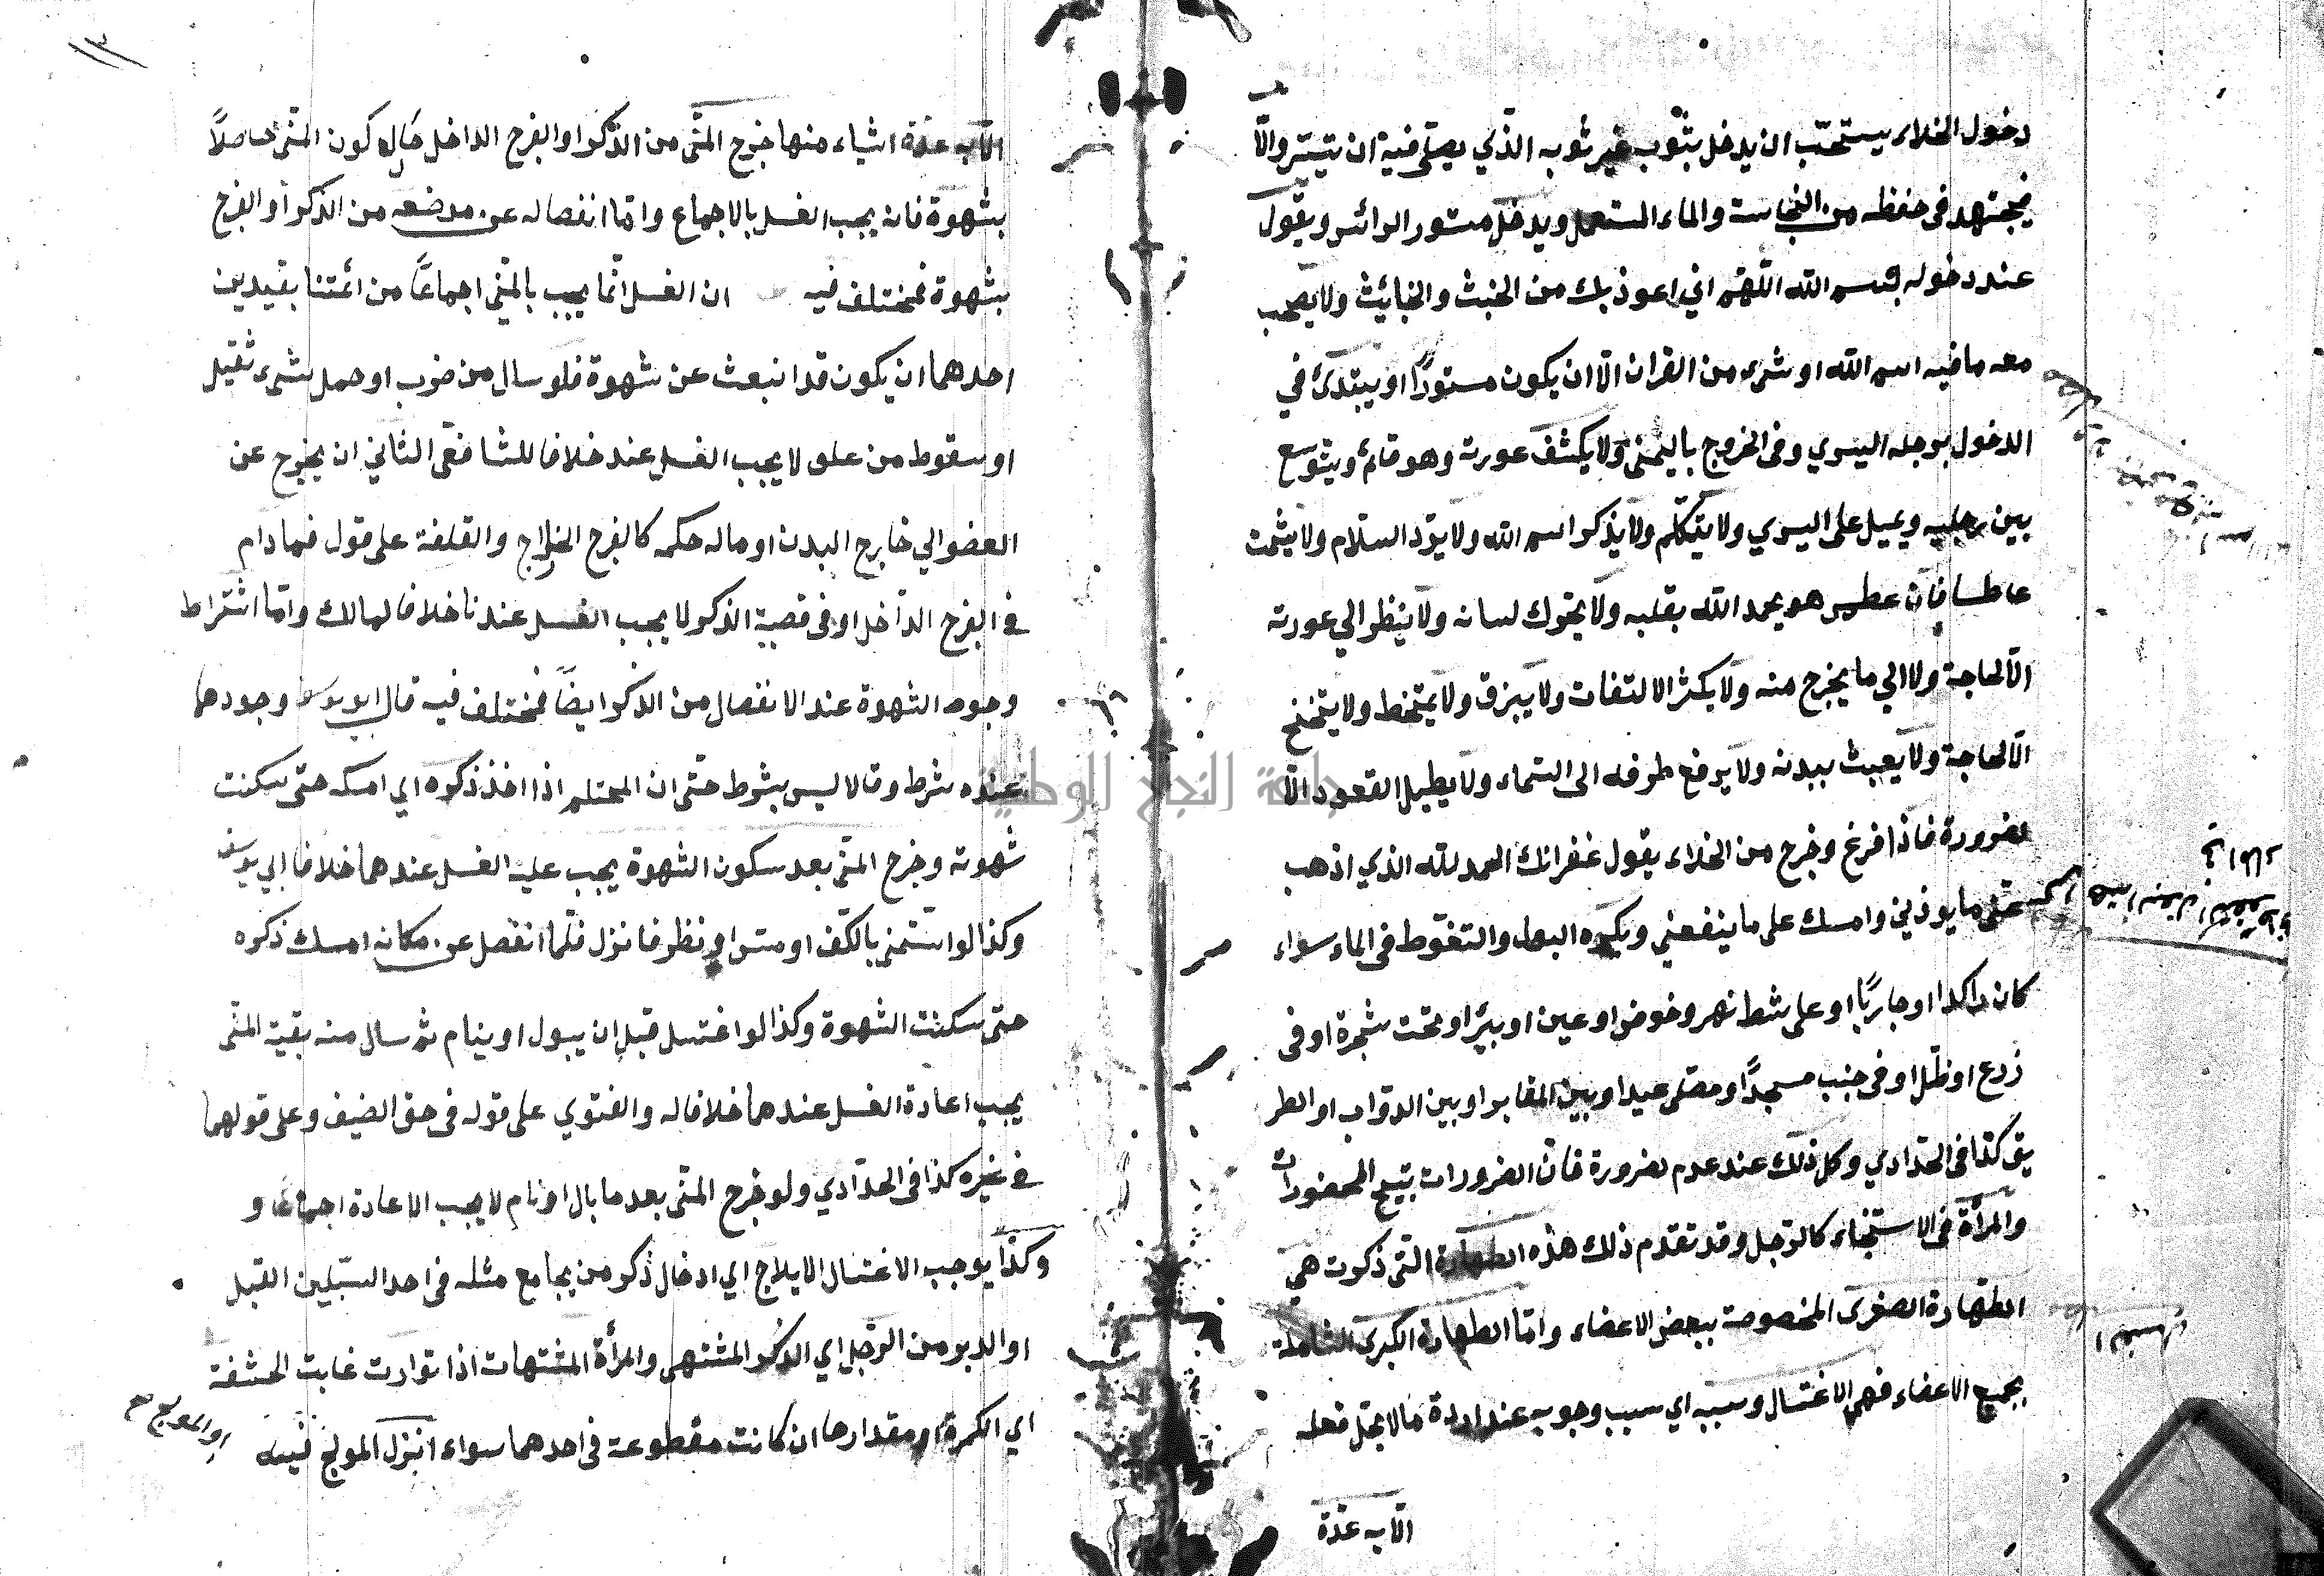 دخول الخلاء يستحب ان يدخل بثوب غير ثوبه الذي يصلي فيه ان تيسر والا
فيجتهد في حفظه من النجاسة والماء المستعمل ويدخل مستور الرائس ويقول
عند دخوله بسم الله اللهم اني اعوذ بك من الخبث والخبائث ولا يصحب
معه ما فيه اسم الله او شيء من القران الا ان يكون مستورًا ويبتدئ في
الدخول برجله اليسري وفي الخروج باليمنى ولا يكشف عورته وهو قائم ويتوسع
بين رجليه ويميل على اليسري ولا يتكلم ولا يذكر اسم الله ولا يرد السلام ولا يشمت
عاطسا فان عطس هو يحمد الله بقلبه ولا يحرك لسانه ولا ينظر الي عورته
الا لحاجة ولا الي ما يخرج منه ولا يكثر الالتفات ولا يبزق ولا يمتخط ولا يتنحنح
الا لحاجة ولا يعبث ببدنه ولا يرفع طرفه الى السماء ولا يطيل القعود الا
لضرورة فاذا فرغ وخرج من الخلاء يقول غفرانك الحمد لله الذي اذهب
عني ما يوذيني وامسك على ما ينفعني ويكره البول والتغوط في الماء سواء
كان راكدا او جاريًا او على شط نهر وخوض او عين او بئر او تحت شجرة او في
زرع او ظل او في جنب مسجدًا ومصلى عيد او بين المقابر او بين الدواب او الطر
يق كذا في الحدادي وكل ذلك عند عدم لضرورة فان الضرورات تبيح المحضورات
والمرأة في الاستنجاء كالرجل وقد تقدم ذلك هذه الطهارة التي ذكرت هي
الطهارة الصغرى المخصوصة ببعض الاعضاء واما الطهارة الكبرى الشاملة
بجميع الاعضاء فهي الاغتسال وسببه اي سبب وجوبه عند اردة مالا يحل فعله
الا به عدة
الا به عدة اشياء منها خرج المني من الذكر او الفرج الداخل حال كون المني حاصلاً
بشهوة فان يجب الغسل بالاجماع واما انفصاله عن موضعه من الذكر او الفرج
بشهوة فمختلف فيه ان الغسل انما يجب بالمني اجماعًا من ائمتنا بقيدين
احدهما ان يكون قد انبعث عن شهوة فلو سال من ضرب او حمل شيء ثقيل
او سقوط من علو لا يجب الغسل عند خلافا للشافعي الثاني ان يخرج عن
العضو الي خارج البدن او ماله حكمه كالفرج الخلاج والقلفة على قول فما دام
في الفرج الداخل او في قصبة الذكر لا يجب الغسل عندنا خلافا لمالك واما اشتراط
وجود الشهوة عند الانفصال من الذكر ايضًا فمختلف فيه قال ابو يوسف وجودها
عنده شرط وقالا ليس بشرط حتى ان المحتلم اذا اخذ ذكره اي امسكه حتى سكنت
شهوته وخرج المني بعد سكون الشهوة يجب عليه الغسل عندهما خلافا لابي يوسف
وكذا لو استمنى بالكف او مس او نظر فانزل فلما انفصل عن مكانه امسك ذكره
حتى سكنت الشهوة وكذا لو اغتسل قبل ان يبول او ينام ثم سال منه بقية المني
يجب اعادة الغسل عندهما خلافا له والفتوي على قوله في حق الضيف وعلى قولهما
في غيره كذا في الحدادي ولو خرج المني بعد ما بال او نام لا يجب الاعادة اجماعًا و
وكذا يوجب الاغتسال الايلاج اي ادخال ذكر من يجامع مثله في احد السبيلين القبل
او الدبر من الرجل اي الذكر المشتهى والمرأة المشتهات اذا توارت غابت الحشفة
اي الكمرة او مقدارها ان كانت مقطوعة في احدهما سواء انزل المولج فيه
او المولج صح
جامعة النجاح الوطنية